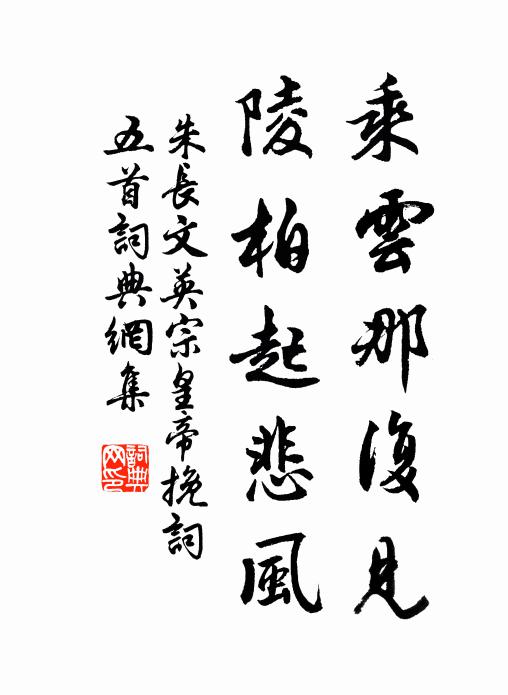 乘雲那復見
陵柏起悲風
朱長文英宗皇帝挽詞
五首詞典網集
詞典網印